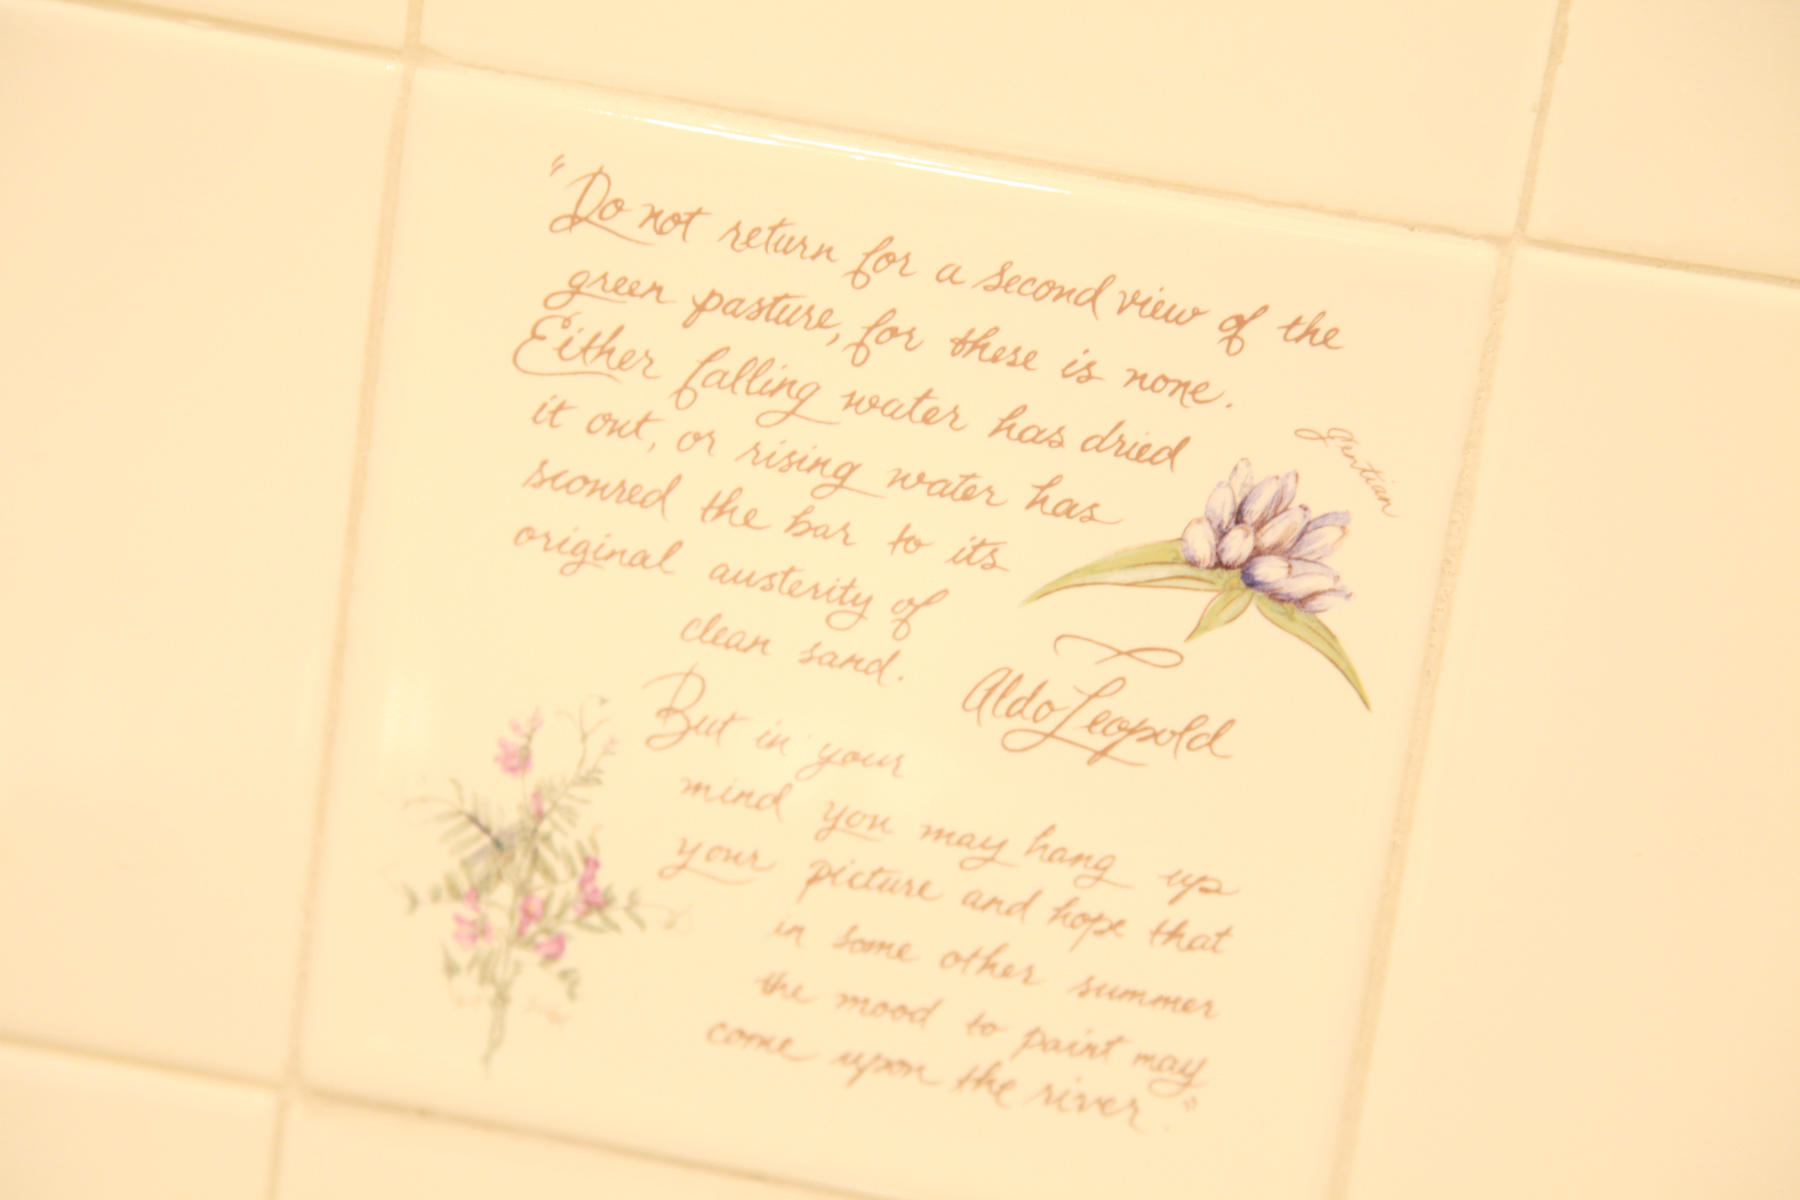 "Do not return for a second view of the
green pasture, for there is none.
Either falling water has dried
it out, or rising water has
scoured the bar to its
original austerity of
clean sand.
But in your
mind you may hang up
your picture and hope that
in some other summer
the mood to paint may
come upon the river."
Aldo Leopold
Gentian